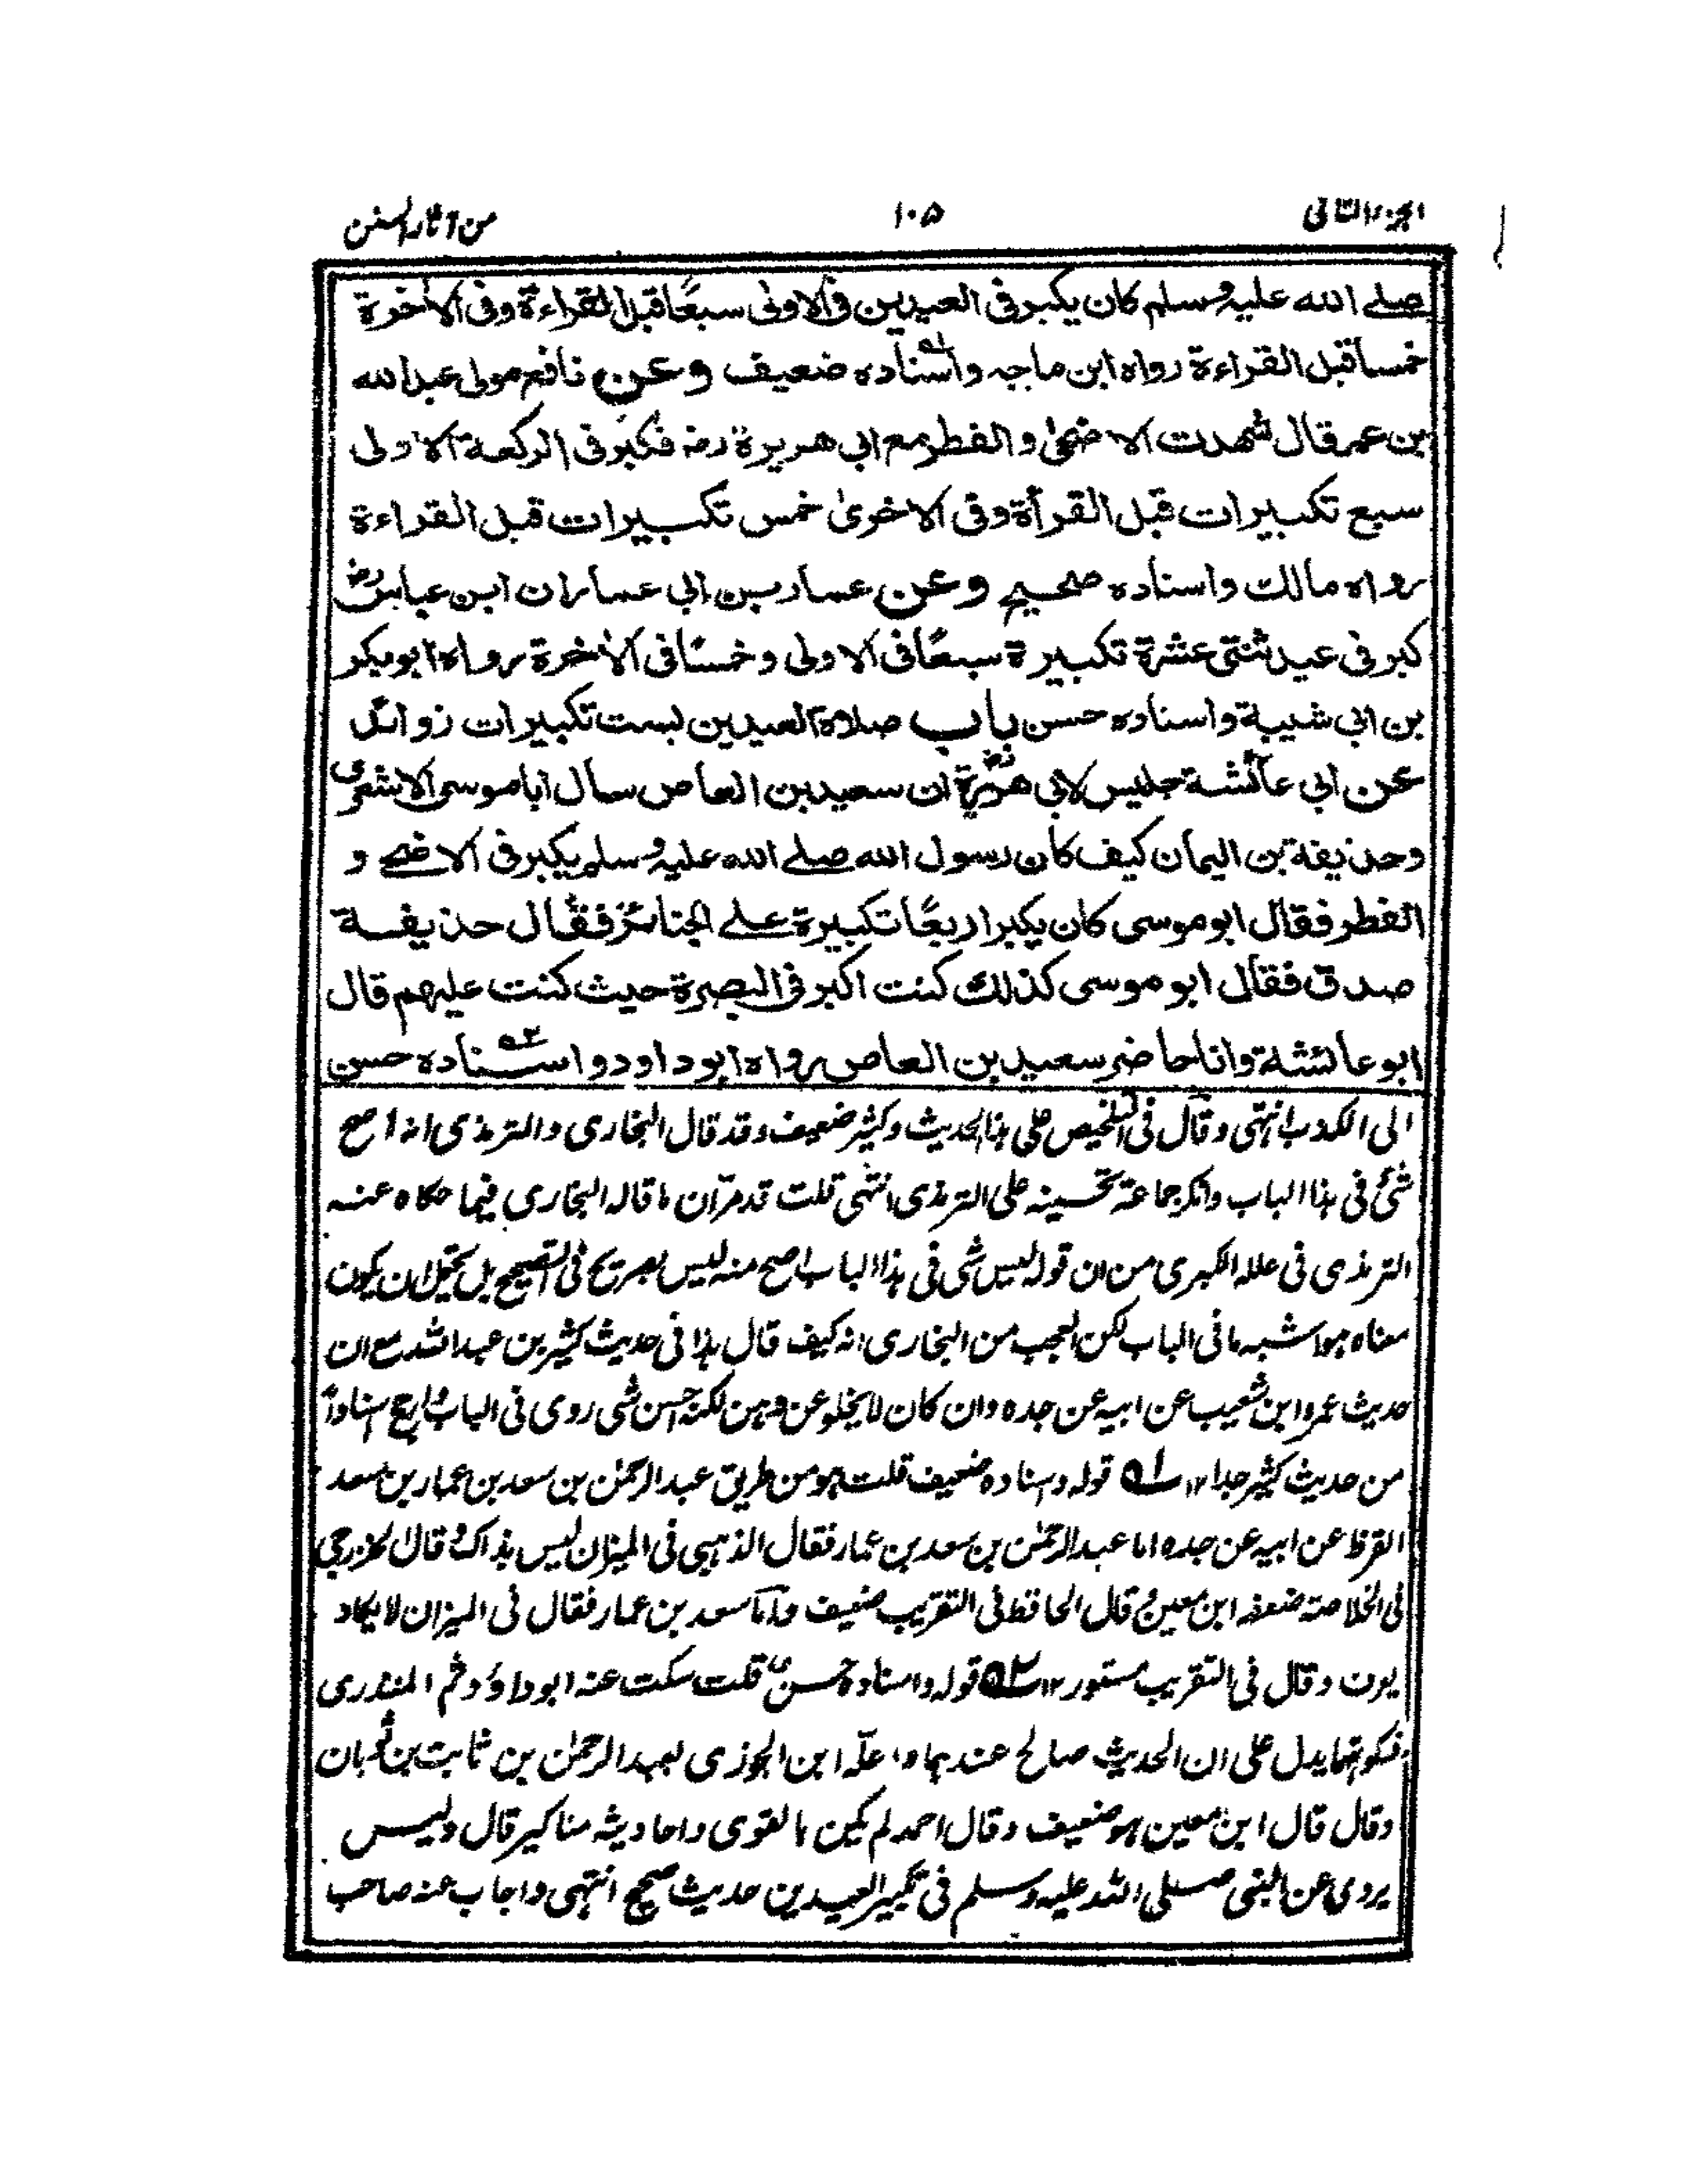 الجزء الثانی
۱۰۵
من آثار السنن
صلے اللہ علیہ وسلم کان یکبر فی العیدین فی الاولی سبعًا قبل القراءۃ وفی الاٰخرۃ
خمسا قبل القراءۃ رواہ ابن ماجہ واسنادہ ضعیف وعن نافع مولی عبد اللہ
بن عمر قال شھدت الاضحیٰ والفطر مع ابی ھریرۃ رضہ فکبر فی الرکعۃ الاولی
سبع تکبیرات قبل القرأۃ وفی الاخریٰ خمس تکبیرات قبل القراءۃ
رواہ مالک واسنادہ صحیح وعن عمار بن ابی عمار ان ابن عباس رضہ
کبر فی عید ثنتی عشرۃ تکبیرۃ سبعًا فی الاولی وخمسًا فی الاٰخرۃ رواہ ابو بکر
بن ابی شیبۃ واسنادہ حسن باب صلاۃ العیدین بست تکبیرات زوائد
عن ابی عائشۃ جلیس لابی ھریرۃ رضہ ان سعید بن العاص سال ابا موسی الاشعری
وحذیفۃ بن الیمان کیف کان رسول اللہ صلے اللہ علیہ وسلم یکبر فی الاضحے و
الفطر فقال ابو موسی کان یکبر اربعًا تکبیرۃ علے الجنائز فقال حذیفۃ
صدق فقال ابو موسی کذلک کنت اکبر فی البصرۃ حیث کنت علیھم قال
ابو عائشۃ وانا حاضر سعید بن العاص رواہ ابو داود واسنادہ حسن
الی الکذب انتہی وقال فی التلخیص علی ہذا الحدیث وکثیر ضعیف وقد قال البخاری والترمذی انہ اصح
شئ فی ہذا الباب وانکر جماعۃ تحسینہ علی الترمذی انتہی قلت قد مر ان ما قالہ البخاری فیما حکاہ عنہ
الترمذی فی عللہ الکبری من ان قولہ لیس شی فی ہذا الباب اصح منہ لیس بصریح فی التصحیح بل یحتمل ان یکون
معناہ ہو اشبہ ما فی الباب لکن العجب من البخاری انہ کیف قال ہذا فی حدیث کثیر بن عبد اللہ مع ان
حدیث عمرو ابن شعیب عن ابیہ عن جدہ وان کان لا یخلو عن وہن لکنہ احسن شی روی فی الباب وارجح اسنادًا
من حدیث کثیر جدا ۱۲ ۵۱ قولہ واسنادہ ضعیف قلت ہو من طریق عبد الرحمٰن بن سعد بن عمار بن سعد
القرظ عن ابیہ عن جدہ اما عبد الرحمٰن بن سعد بن عمار فقال الذہبی فی المیزان لیس بذاک وقال الخزرجی
فی الخلاصۃ ضعفہ ابن معین وقال الحافظ فی التقریب ضعیف واما سعد بن عمار فقال فی المیزان لا یکاد
یعرف وقال فی التقریب مستور ۱۲ ۵۲ قولہ واسنادہ حسن قلت سکت عنہ ابو داؤد ثم المنذری
فسکوتہما یدل علی ان الحدیث صالح عندہما واعلّہ ابن الجوزی بعبد الرحمٰن بن ثابت بن ثوبان
وقال قال ابن معین ہو ضعیف وقال احمد لم یکن بالقوی واحادیثہ مناکیر قال ولیس
یروی عن النبی صلی اللہ علیہ وسلم فی تکبیر العیدین حدیث صحیح انتہی واجاب عنہ صاحب